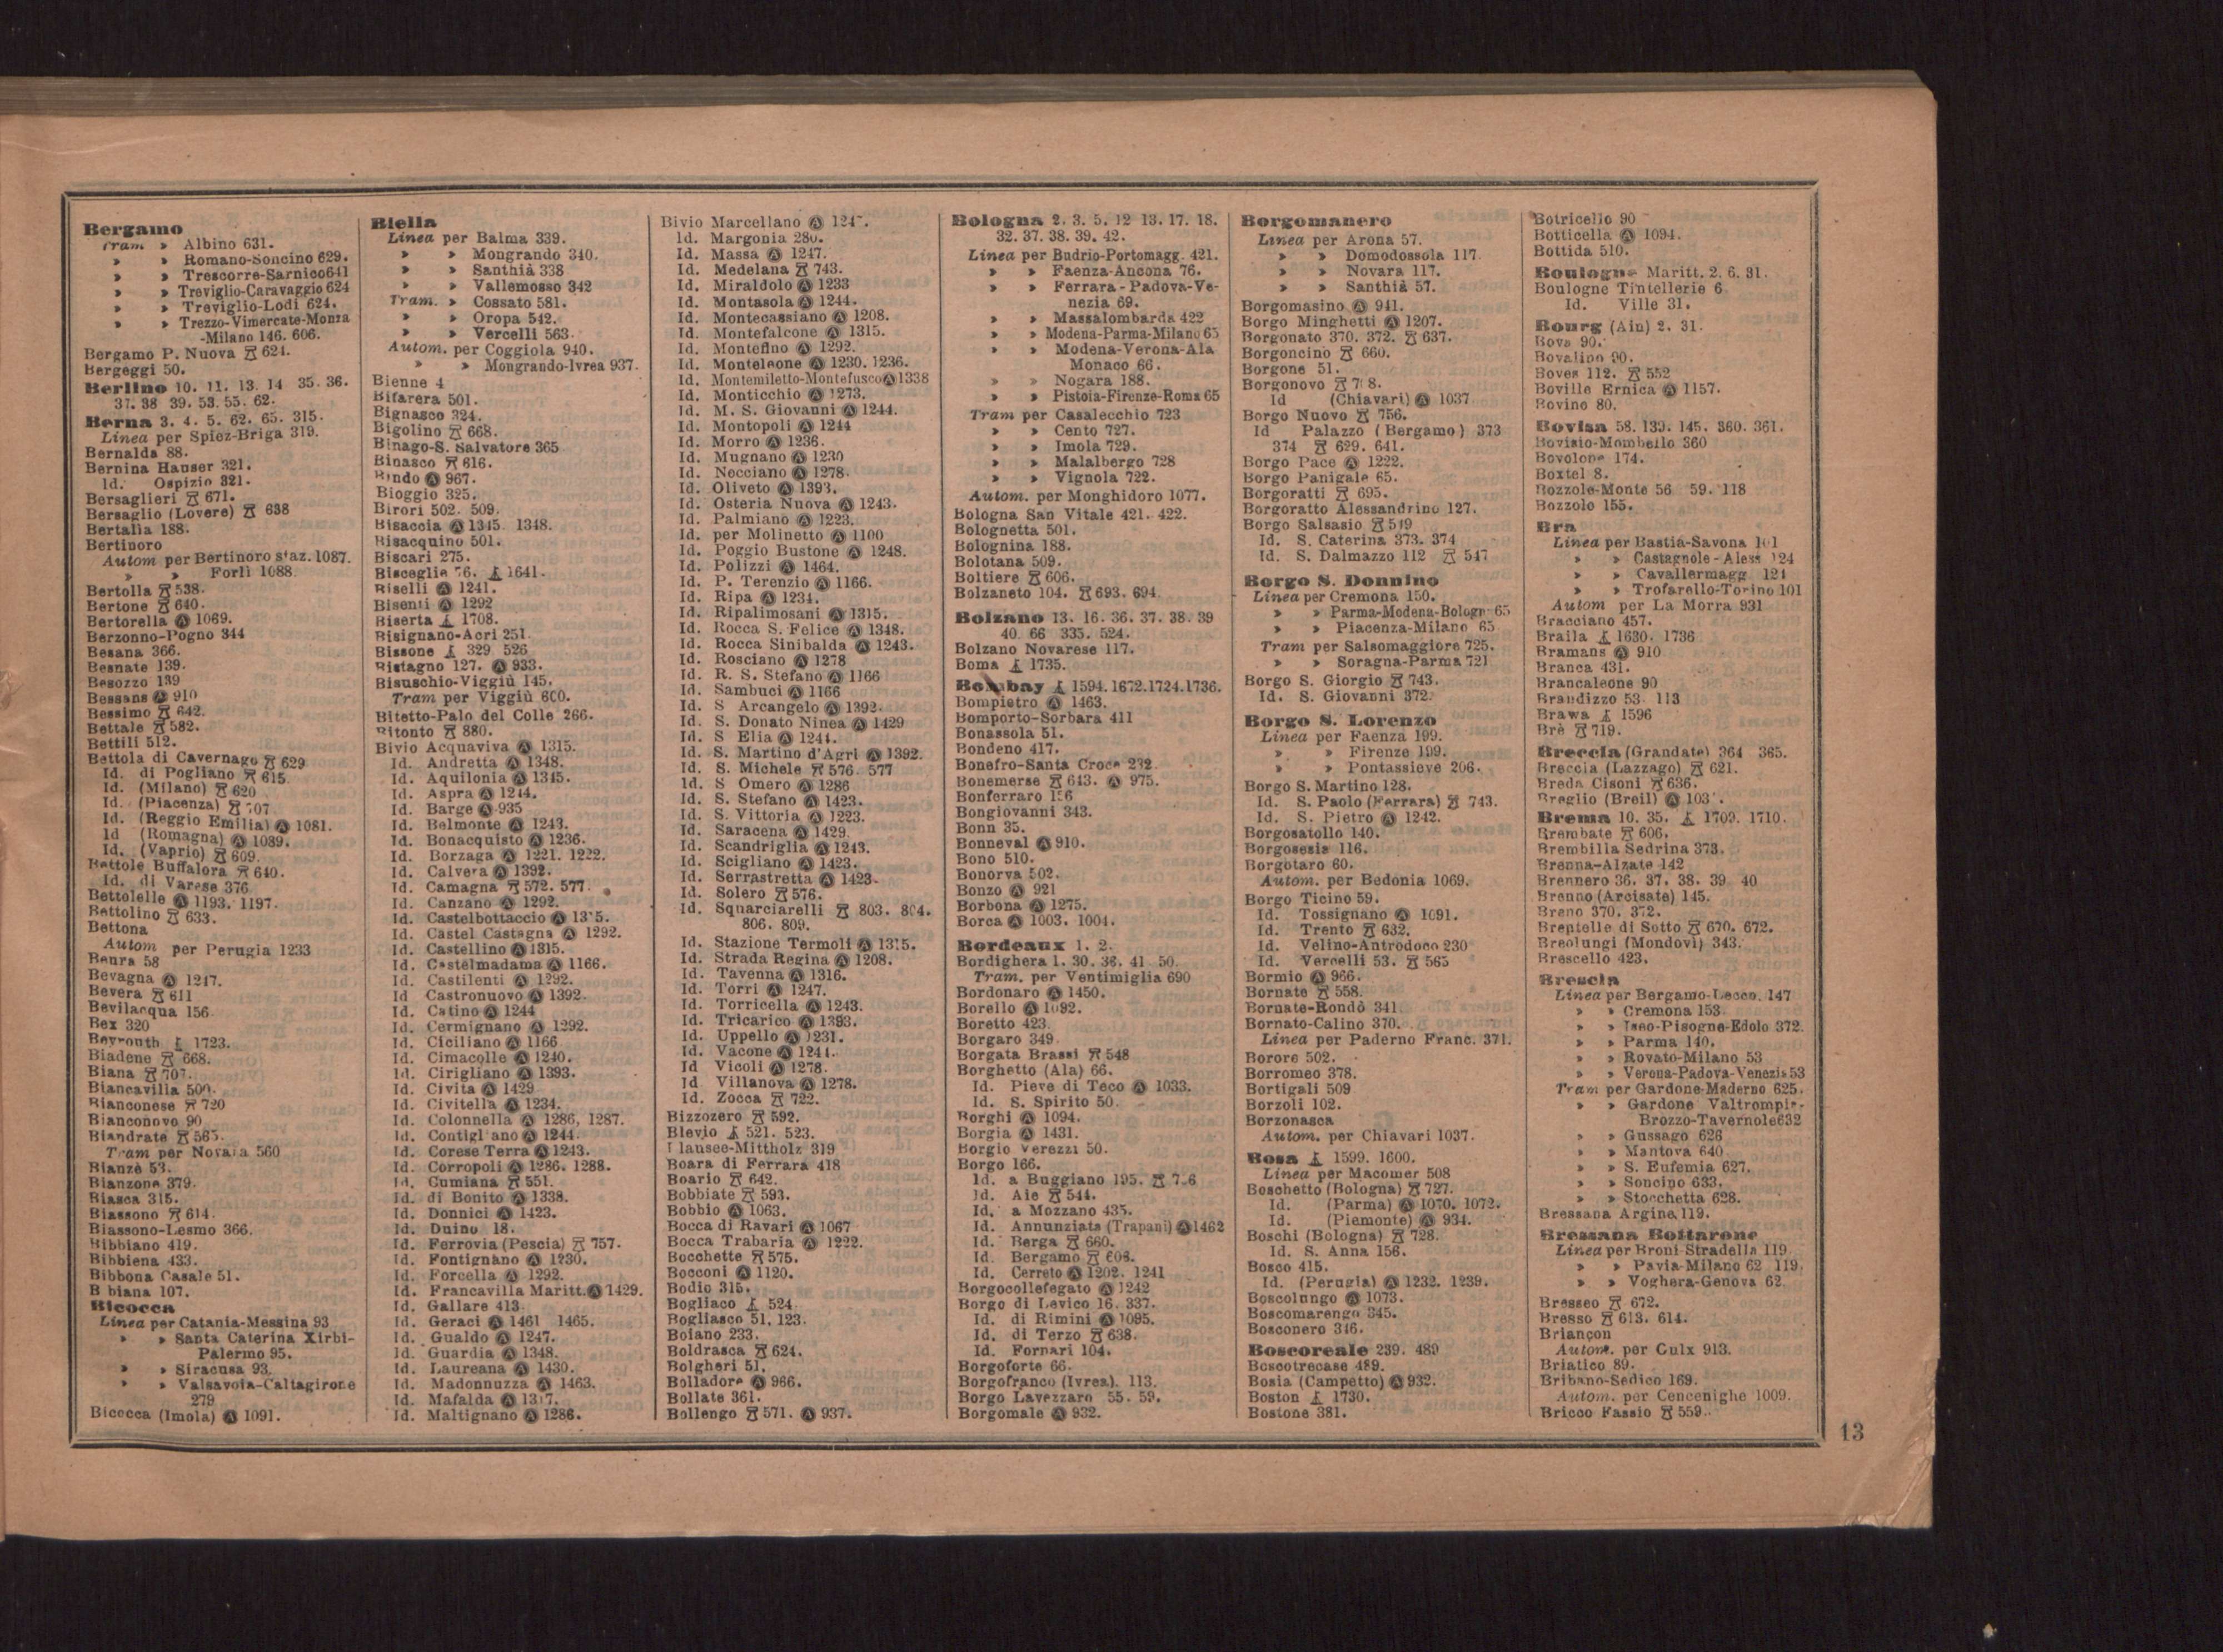 Bergamo
Tram » Albino 631.
» » Romano-Soncino 629.
» » Trescorre-Sarnico 641
» » Treviglio-Caravaggio 624
» » Treviglio-Lodi 624.
» » Trezzo-Vimercate-Monza
-Milano 146. 606.
Bergamo P. Nuova 624.
Bergeggi 50.
Berlino 10. 11. 13. 14 35. 36.
37. 38 39. 53. 55. 62.
Berna 3. 4. 5. 62. 65. 315.
Linea per Spiez-Briga 319.
Bernalda 88.
Bernina Hauser 321.
Id. Ospizio 321.
Bersaglieri 671.
Bersaglio (Lovere) 638
Bertalia 188.
Bertinoro
Autom per Bertinoro staz. 1087.
» » Forlì 1088.
Bertolla 538.
Bertone 640.
Bertorella Ⓐ 1069.
Berzonno-Pogno 344
Besana 366.
Besnate 139.
Besozzo 139
Bessans Ⓐ 910
Bessimo 642.
Bettale 582.
Bettili 512.
Bettola di Cavernago 629
Id. di Pogliano 615.
Id. (Milano) 620
Id. (Piacenza) 707
Id. (Reggio Emilia) Ⓐ 1081.
Id (Romagna) Ⓐ 1089.
Id. (Vaprio) 609.
Bettole Buffalora 640.
Id. di Varese 376
Bettolelle Ⓐ 1193. 1197.
Bettolino 633.
Bettona
Autom per Perugia 1233
Beura 58
Bevagna Ⓐ 1247.
Bevera 611
Bevilacqua 156
Bex 320
Beyrouth 1723.
Biadene 668.
Biana 707.
Biancavilla 500.
Bianconese 720
Bianconovo 90
Biandrate 565.
Tram per Novara 560
Bianzè 53.
Bianzone 379.
Biasca 315.
Biassono 614.
Biassono-Lesmo 366.
Bibbiano 419.
Bibbiena 433.
Bibbona Casale 51.
B biana 107.
Bicocca
Linea per Catania-Messina 93
» » Santa Caterina Xirbi-
Palermo 95.
» » Siracusa 93.
» » Valsavoia-Caltagirone
279
Bicocca (Imola) Ⓐ 1091.
Biella
Linea per Balma 339.
» » Mongrando 340.
» » Santhià 338
» » Vallemosso 342
Tram. » Cossato 581.
» » Oropa 542.
» » Vercelli 563.
Autom. per Coggiola 940.
» » Mongrando-Ivrea 937.
Bienne 4
Bifarera 501.
Bignasco 324.
Bigolino 668.
Binago-S. Salvatore 365
Binasco 616.
Bindo Ⓐ 967.
Bioggio 325.
Birori 502. 509.
Bisaccia Ⓐ 1345. 1348.
Bisacquino 501.
Biscari 275.
Bisceglie 76. 1641.
Biselli Ⓐ 1241.
Bisenti Ⓐ 1292
Biserta 1708.
Bisignano-Acri 251.
Bissone 329 526
Bistagno 127. Ⓐ 933.
Bisuschio-Viggiù 145.
Tram per Viggiù 600.
Bitetto-Palo del Colle 266.
Bitonto 880.
Bivio Acquaviva Ⓐ 1315.
Id. Andretta Ⓐ 1348.
Id. Aquilonia Ⓐ 1345.
Id. Aspra Ⓐ 1244.
Id. Barge Ⓐ 935
Id. Belmonte Ⓐ 1243.
Id. Bonacquisto Ⓐ 1236.
Id. Borzaga Ⓐ 1221. 1222.
Id. Calvera Ⓐ 1392.
Id. Camagna 572. 577.
Id. Canzano Ⓐ 1292.
Id. Castelbottaccio Ⓐ 1315.
Id. Castel Castagna Ⓐ 1292.
Id. Castellino Ⓐ 1315.
Id. Castelmadama Ⓐ 1166.
Id. Castilenti Ⓐ 1292.
Id Castronuovo Ⓐ 1392.
Id. Catino Ⓐ 1244
Id. Cermignano Ⓐ 1292.
Id. Ciciliano Ⓐ 1166
Id. Cimacolle Ⓐ 1240.
Id. Cirigliano Ⓐ 1393.
Id. Civita Ⓐ 1429
Id. Civitella Ⓐ 1234.
Id. Colonnella Ⓐ 1286, 1287.
Id. Contigliano Ⓐ 1244.
Id. Corese Terra Ⓐ 1243.
Id. Corropoli Ⓐ 1286. 1288.
Id. Cumiana 551.
Id. di Bonito Ⓐ 1338.
Id. Donnici Ⓐ 1423.
Id. Duino 18.
Id. Ferrovia (Pescia) 757.
Id. Fontignano Ⓐ 1230.
Id. Forcella Ⓐ 1292.
Id. Francavilla Maritt. Ⓐ 1429.
Id. Gallare 413
Id. Geraci Ⓐ 1461 1465.
Id. Gualdo Ⓐ 1247.
Id. Guardia Ⓐ 1348.
Id. Laureana Ⓐ 1430.
Id. Madonnuzza Ⓐ 1463.
Id. Mafalda Ⓐ 1317.
Id. Maltignano Ⓐ 1286.
Bivio Marcellano Ⓐ
Id. Margonia 280.
Id. Massa Ⓐ 1247.
Id. Medelana 743.
Id. Miraldolo Ⓐ 1233
Id. Montasola Ⓐ 1244.
Id. Montecassiano Ⓐ 1208.
Id. Montefalcone Ⓐ 1315.
Id. Montefino Ⓐ 1292.
Id. Monteleone Ⓐ 1230. 1236.
Id. Montemiletto-Montefusco Ⓐ 1338
Id. Monticchio Ⓐ 1273.
Id. M. S. Giovanni Ⓐ 1244.
Id. Montopoli Ⓐ 1244
Id. Morro Ⓐ 1236.
Id. Mugnano Ⓐ 1230
Id. Necciano Ⓐ 1278.
Id. Oliveto Ⓐ 1393.
Id. Osteria Nuova Ⓐ 1243.
Id. Palmiano Ⓐ 1223.
Id. per Molinetto Ⓐ 1100
Id. Poggio Bustone Ⓐ 1248.
Id. Polizzi Ⓐ 1464.
Id. P. Terenzio Ⓐ 1166.
Id. Ripa Ⓐ 1234.
Id. Ripalimosani Ⓐ 1315.
Id. Rocca S. Felice Ⓐ 1348.
Id. Rocca Sinibalda Ⓐ 1243.
Id. Rosciano Ⓐ 1278
Id. R. S. Stefano Ⓐ 1166
Id. Sambuci Ⓐ 1166
Id. S Arcangelo Ⓐ 1392.
Id. S. Donato Ninea Ⓐ 1429
Id. S Elia Ⓐ 1244.
Id. S. Martino d'Agri Ⓐ 1392.
Id. S. Michele 576. 577
Id. S Omero Ⓐ 1286
Id. S. Stefano Ⓐ 1423.
Id. S. Vittoria Ⓐ 1223.
Id. Saracena Ⓐ 1429.
Id. Scandriglia Ⓐ 1243.
Id. Scigliano Ⓐ 1423.
Id. Serrastretta Ⓐ 1423.
Id. Solero 576.
Id. Squarciarelli 803. 804.
806. 809.
Id. Stazione Termoli Ⓐ 1315.
Id. Strada Regina Ⓐ 1208.
Id. Tavenna Ⓐ 1316.
Id. Torri Ⓐ 1247.
Id. Torricella Ⓐ 1243.
Id. Tricarico Ⓐ 1393.
Id. Uppello Ⓐ 1231.
Id. Vacone Ⓐ 1244.
Id Vicoli Ⓐ 1278.
Id Villanova Ⓐ 1278.
Id. Zocca 722.
Bizzozero 592.
Blevio 521. 523.
Blausee-Mittholz 319
Boara di Ferrara 418
Boario 642.
Bobbiate 593.
Bobbio Ⓐ 1063.
Bocca di Ravari Ⓐ 1067
Bocca Trabaria Ⓐ 1222.
Bocchette 575.
Bocconi Ⓐ 1120.
Bodio 315.
Bogliaco 524
Bogliasco 51. 123.
Boiano 233.
Boldrasca 624.
Bolgheri 51.
Bolladore Ⓐ 966.
Bollate 361.
Bollengo 571. Ⓐ 937.
Bologna 2. 3. 5. 12 13. 17. 18.
32. 37. 38. 39. 42.
Linea per Budrio-Portomagg. 421.
» » Faenza-Ancona 76.
» » Ferrara-Padova-Ve-
nezia 69.
» » Massalombarda 422
» » Modena-Parma-Milano 65
» » Modena-Verona-Ala
Monaco 66.
» » Nogara 188.
» » Pistoia-Firenze-Roma 65
Tram per Casalecchio 723
» » Cento 727.
» » Imola 729.
» » Malalbergo 728
» » Vignola 722.
Autom. per Monghidoro 1077.
Bologna San Vitale 421. 422.
Bolognetta 501.
Bolognina 188.
Bolotana 509.
Boltiere 606.
Bolzaneto 104. 693. 694.
Bolzano 13. 16. 36. 37. 38. 39
40. 66 335. 524.
Bolzano Novarese 117.
Boma 1735.
Bombay 1594. 1672. 1724. 1736.
Bompietro Ⓐ 1463.
Bomporto-Sorbara 411
Bonassola 51.
Bondeno 417.
Bonefro-Santa Croce 232
Bonemerse 643. Ⓐ 975.
Bonferraro 156
Bongiovanni 343.
Bonn 35.
Bonneval Ⓐ 910.
Bono 510.
Bonorva 502.
Bonzo Ⓐ 921
Borbona Ⓐ 1275.
Borca Ⓐ 1003. 1004.
Bordeaux 1. 2.
Bordighera 1. 30. 36. 41 50.
Tram. per Ventimiglia 690
Bordonaro Ⓐ 1450.
Borello Ⓐ 1092.
Boretto 423.
Borgaro 349
Borgata Brassi 548
Borghetto (Ala) 66.
Id. Pieve di Teco Ⓐ 1033.
Id. S. Spirito 50.
Borghi Ⓐ 1094.
Borgia Ⓐ 1431.
Borgio Verezzi 50.
Borgo 166.
Id. a Buggiano 195.
Id. Aie 544.
Id. a Mozzano 435.
Id. Annunziata (Trapani) Ⓐ 1462
Id. Berga 660.
Id. Bergamo 608.
Id. Cerreto Ⓐ 1202. 1241
Borgocollefegato Ⓐ 1242
Borgo di Levico 16. 337.
Id. di Rimini Ⓐ 1095.
Id. di Terzo 638.
Id. Fornari 104.
Borgoforte 66.
Borgofranco (Ivrea). 113.
Borgo Lavezzaro 55. 59.
Borgomale Ⓐ 932.
Borgomanero
Linea per Arona 57.
» » Domodossola 117.
» » Novara 117.
» » Santhià 57.
Borgomasino Ⓐ 941.
Borgo Minghetti Ⓐ 1207.
Borgonato 370. 372. 637.
Borgoncino 660.
Borgone 51.
Borgonovo
Id (Chiavari) Ⓐ 1037
Borgo Nuovo 756.
Id Palazzo (Bergamo) 373
374 629. 641.
Borgo Pace Ⓐ 1222.
Borgo Panigale 65.
Borgoratti 695.
Borgoratto Alessandrino 127.
Borgo Salsasio 549
Id. S. Caterina 373. 374
Id. S. Dalmazzo 112 547
Borgo S. Donnino
Linea per Cremona 150.
» » Parma-Modena-Bologn 65
» » Piacenza-Milano 65
Tram per Salsomaggiore 725.
» » Soragna-Parma 721
Borgo S. Giorgio 743.
Id. S. Giovanni 372.
Borgo S. Lorenzo
Linea per Faenza 199.
» » Firenze 199.
» » Pontassieve 206.
Borgo S. Martino 128.
Id. S. Paolo (Ferrara) 743.
Id. S. Pietro Ⓐ 1242.
Borgosatollo 140.
Borgosesia 116.
Borgotaro 60.
Autom. per Bedonia 1069.
Borgo Ticino 59.
Id. Tossignano Ⓐ 1091.
Id. Trento 632.
Id. Velino-Antrodoco 230
Id. Vercelli 53. 565
Bormio Ⓐ 966.
Bornate 558.
Bornate-Rondò 341
Bornato-Calino 370.
Linea per Paderno Franc. 371.
Borore 502.
Borromeo 378.
Bortigali 509
Borzoli 102.
Borzonasca
Autom. per Chiavari 1037.
Bosa 1599. 1600.
Linea per Macomer 508
Boschetto (Bologna) 727.
Id. (Parma) Ⓐ 1070. 1072.
Id. (Piemonte) Ⓐ 934.
Boschi (Bologna) 728.
Id. S. Anna 156.
Bosco 415.
Id. (Perugia) Ⓐ 1232. 1239.
Boscolungo Ⓐ 1073.
Boscomarengo 345.
Bosconero 346.
Boscoreale 239. 489
Boscotrecase 489.
Bosia (Campetto) Ⓐ 932.
Boston 1730.
Bostone 381.
Botricello 90
Botticella Ⓐ 1094.
Bottida 510.
Boulogne Maritt. 2. 6. 31.
Boulogne Tintellerie 6
Id. Ville 31.
Bourg (Ain) 2. 31.
Bova 90.
Bovalino 90.
Boves 112. 552
Boville Ernica Ⓐ 1157.
Bovino 80.
Bovisa 58. 139. 145. 360. 361.
Bovisio-Mombello 360
Bovolone 174.
Boxtel 8.
Bozzole-Monte 56 59. 118
Bozzolo 155.
Bra
Linea per Bastia-Savona 101
» » Castagnole-Aless 124
» » Cavallermagg 124
» » Trofarello-Torino 101
Autom per La Morra 931
Bracciano 457.
Braila 1630. 1736
Bramans Ⓐ 910
Branca 431.
Brancaleone 90
Brandizzo 53 113
Brawa 1596
Brè 719.
Breccia (Grandate) 364 365.
Breccia (Lazzago) 621.
Breda Cisoni 636.
Breglio (Breil) Ⓐ
Brema 10. 35. 1709. 1710.
Brembate 606.
Brembilla Sedrina 373.
Brenna-Alzate 142
Brennero 36. 37. 38. 39 40
Brenno (Arcisate) 145.
Breno 370. 372.
Brentelle di Sotto 670. 672.
Breolungi (Mondovì) 343.
Brescello 423.
Brescia
Linea per Bergamo-Lecco. 147
» » Cremona 153
» » Iseo-Pisogne-Edolo 372.
» » Parma 140.
» » Rovato-Milano 53
» » Verona-Padova-Venezia 53
Tram per Gardone-Maderno 625.
» » Gardone Valtrompia-
Brozzo-Tavernole 632
» » Gussago 626
» » Mantova 640
» » S. Eufemia 627.
» » Soncino 633.
» » Stocchetta 628.
Bressana Argine 119.
Bressana Bottarone
Linea per Broni Stradella 119
» » Pavia-Milano 62 119.
» » Voghera-Genova 62
Bresseo 672.
Bresso 613. 614.
Briançon
Autom. per Oulx 913.
Briatico 89.
Bribano-Sedico 169.
Autom. per Cencenighe 1009.
Bricco Fassio 559.
13